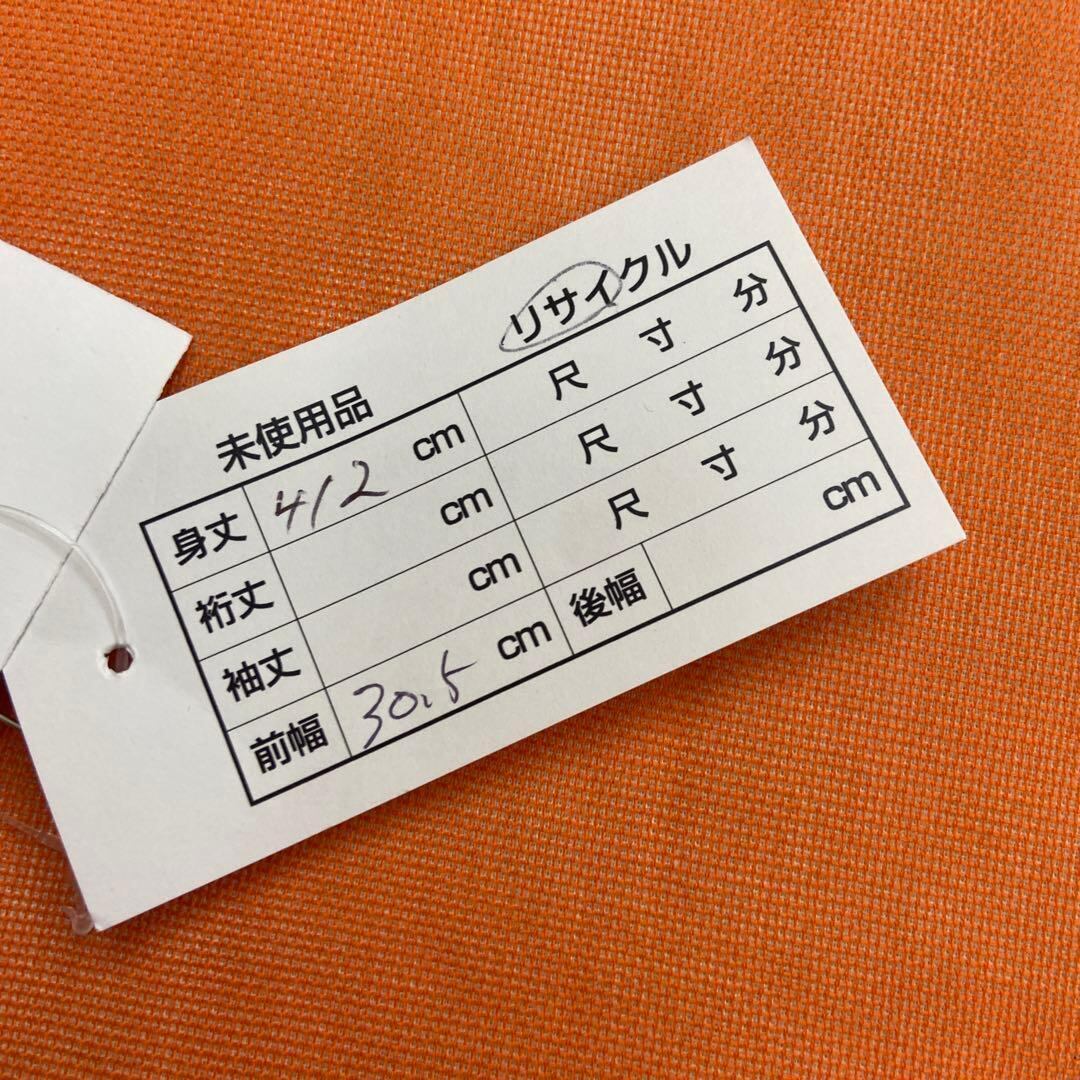 未使用品 リサイクル
身丈 412 cm 尺 寸 分
裄丈 cm 尺 寸 分
袖丈 cm 尺 寸 分
前幅 30.5 cm 後幅 cm